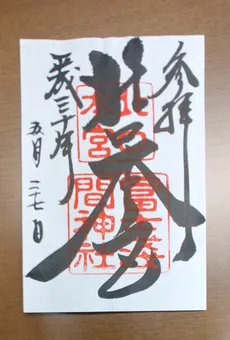 参拝
北口
本宮
冨士浅
間神社
平成三十年
五月二十七日